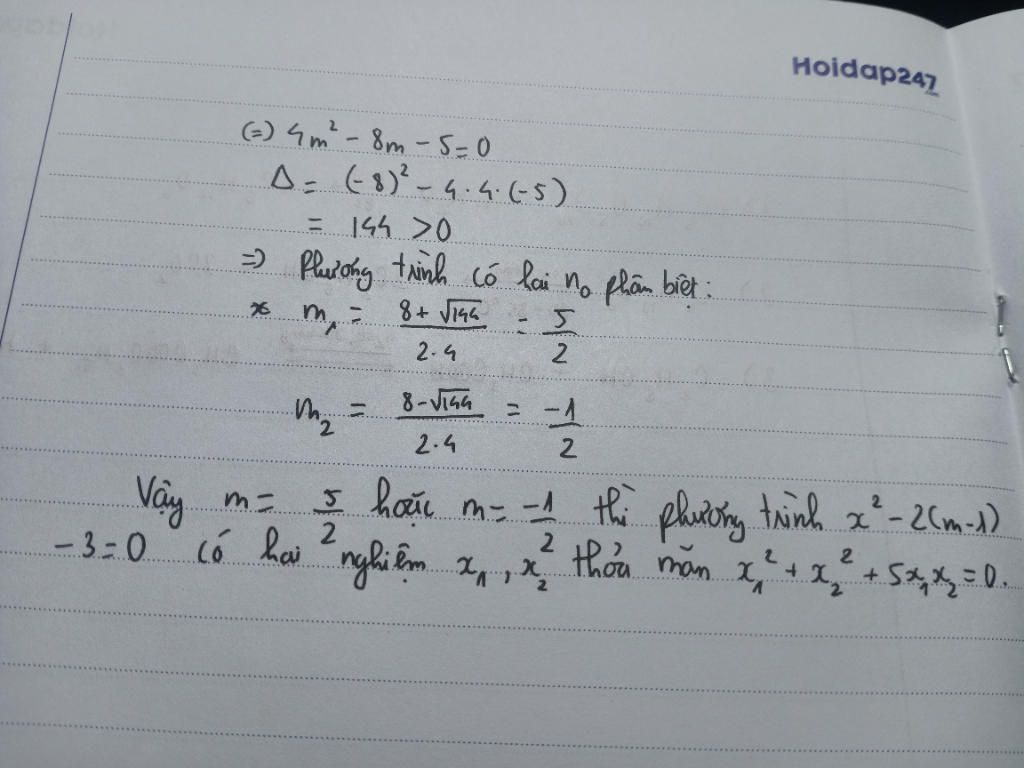 Hoidap247
(=) 4m² - 8m - 5 = 0
Δ = (-8)² - 4.4.(-5)
= 144 > 0
=> Phương trình có hai n₀ phân biệt:
* m₁ = (8+√144)/(2.4) = 5/2
m₂ = (8-√144)/(2.4) = -1/2
Vậy m = 5/2 hoặc m = -1/2 thì phương trình x² - 2(m-1)
- 3 = 0 có hai nghiệm x₁, x₂ thỏa mãn x₁² + x₂² + 5x₁x₂ = 0.